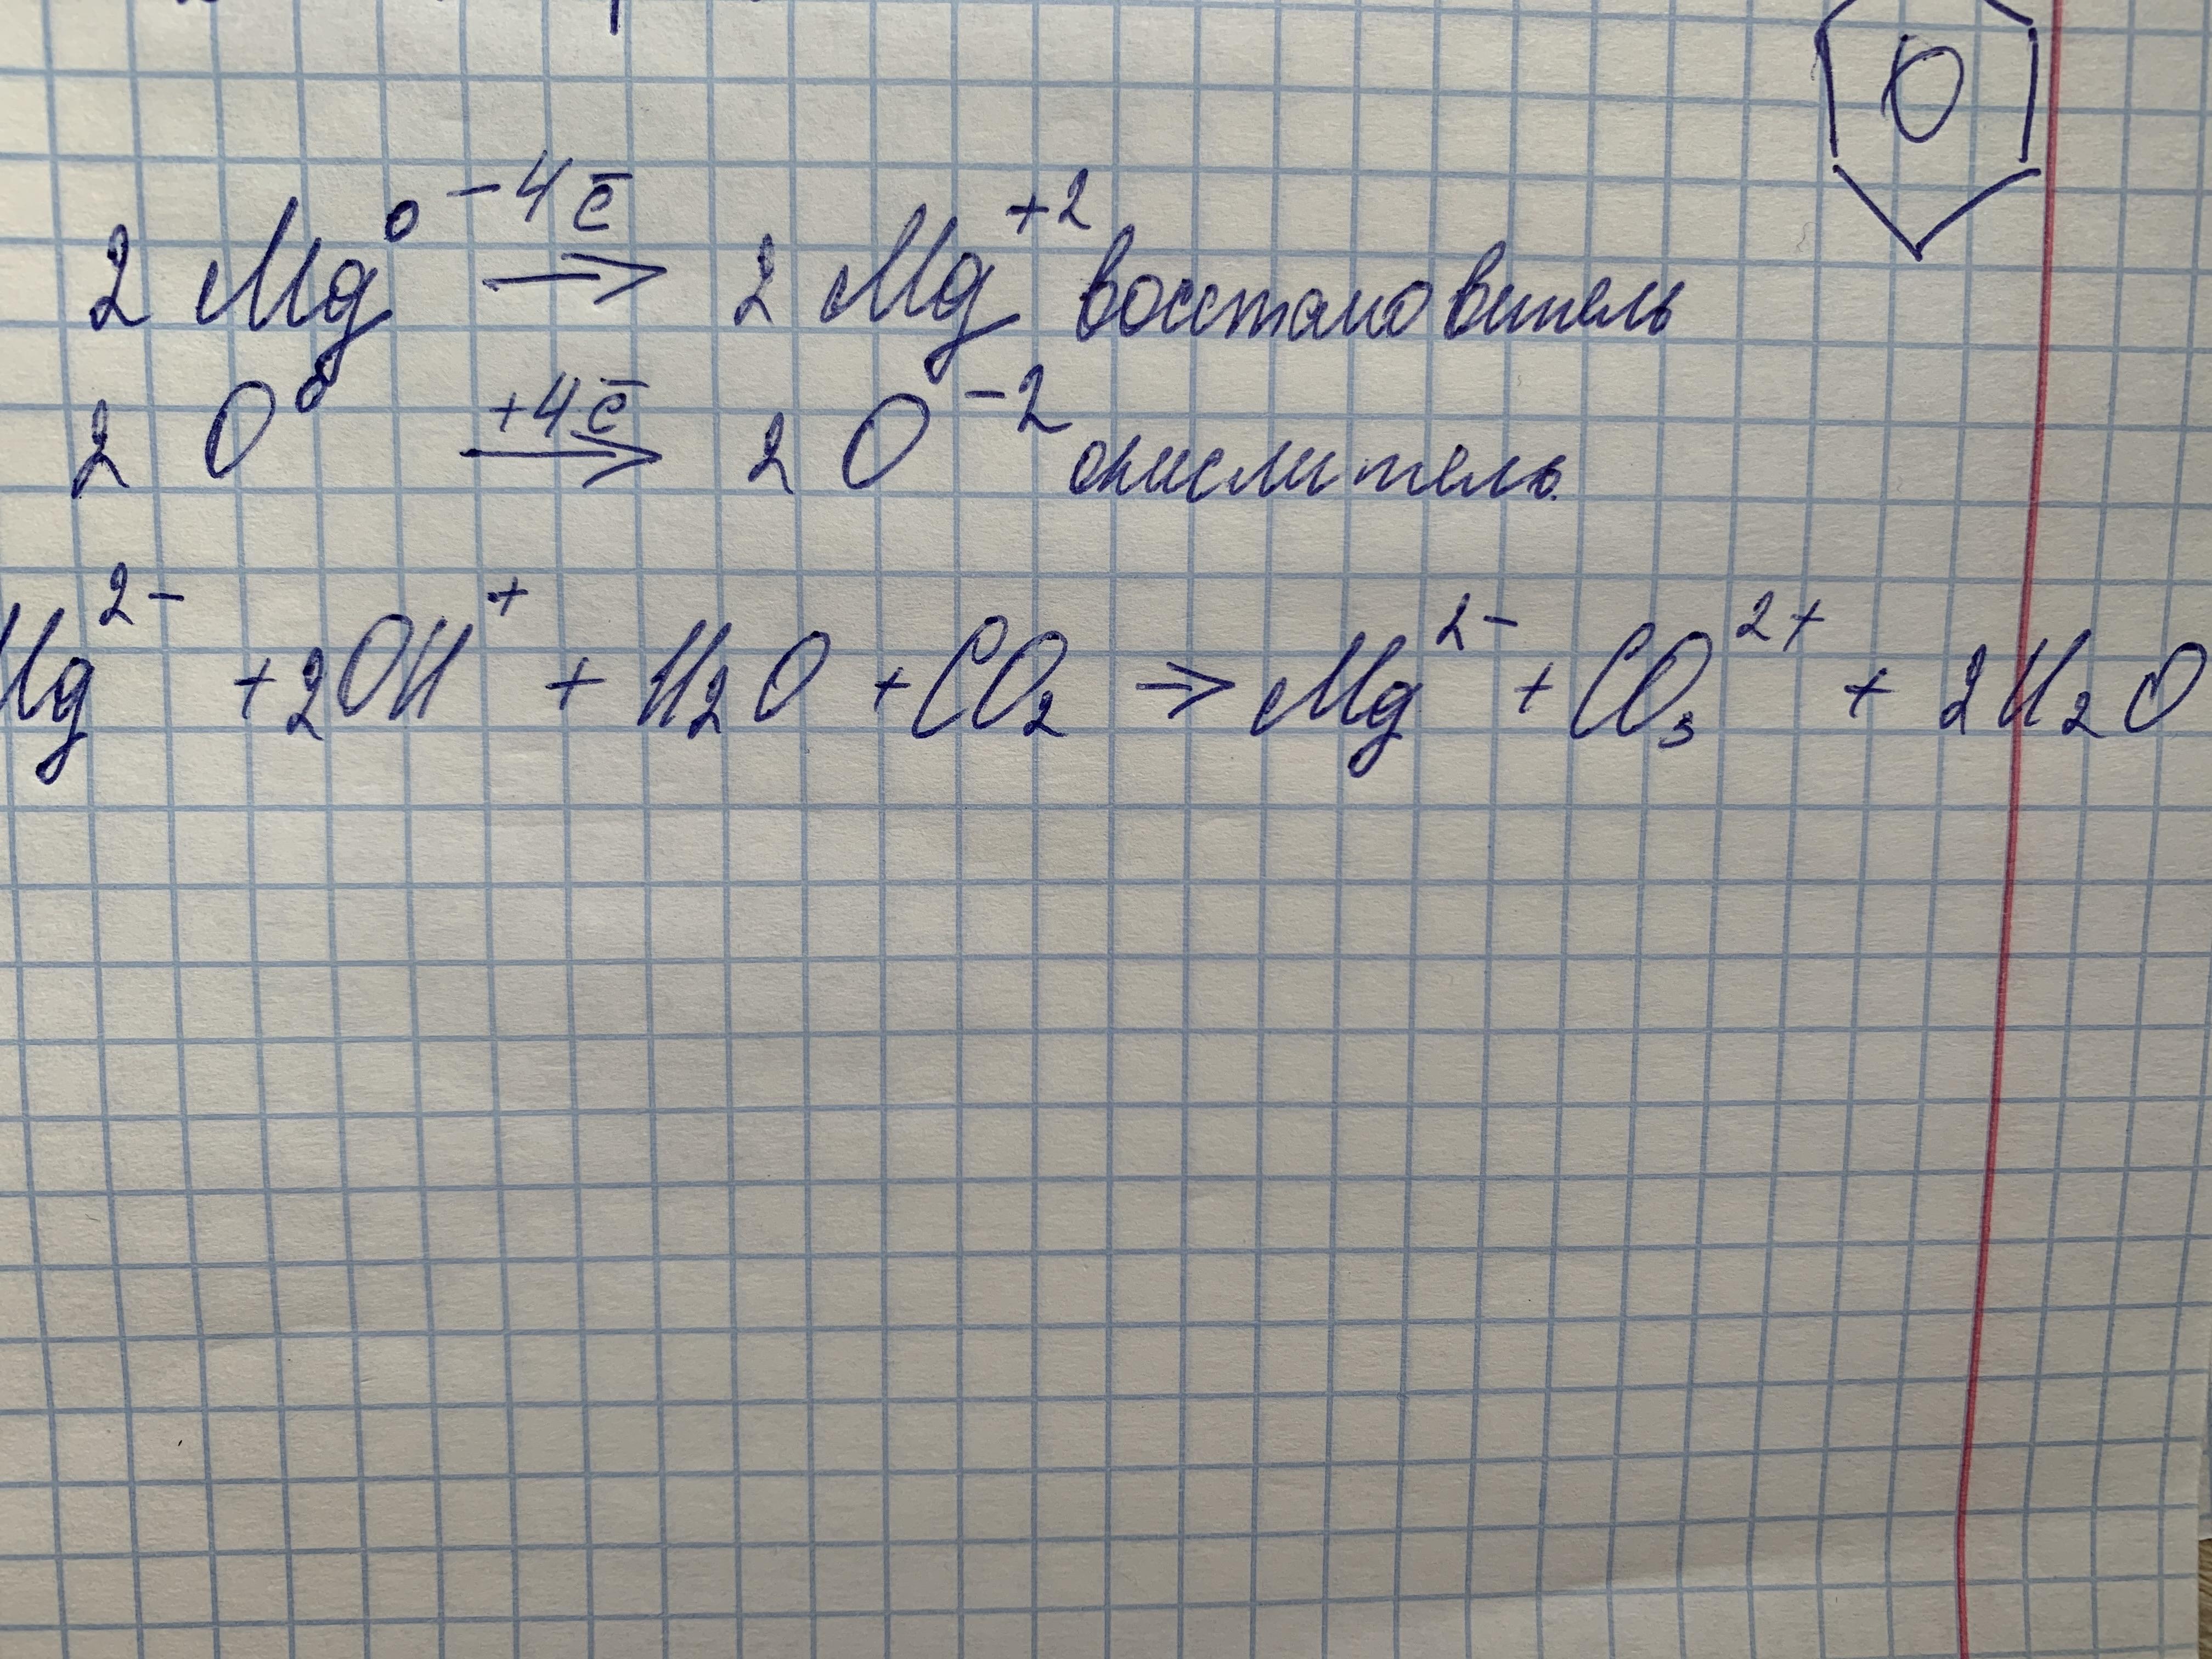 2 Mg⁰ -4ē → 2 Mg⁺² восстановитель
2 O⁰ +4ē → 2 O⁻² окислитель
Mg²⁻ + 2OH⁺ + H₂O + CO₂ → Mg²⁻ + CO₃²⁺ + 2H₂O